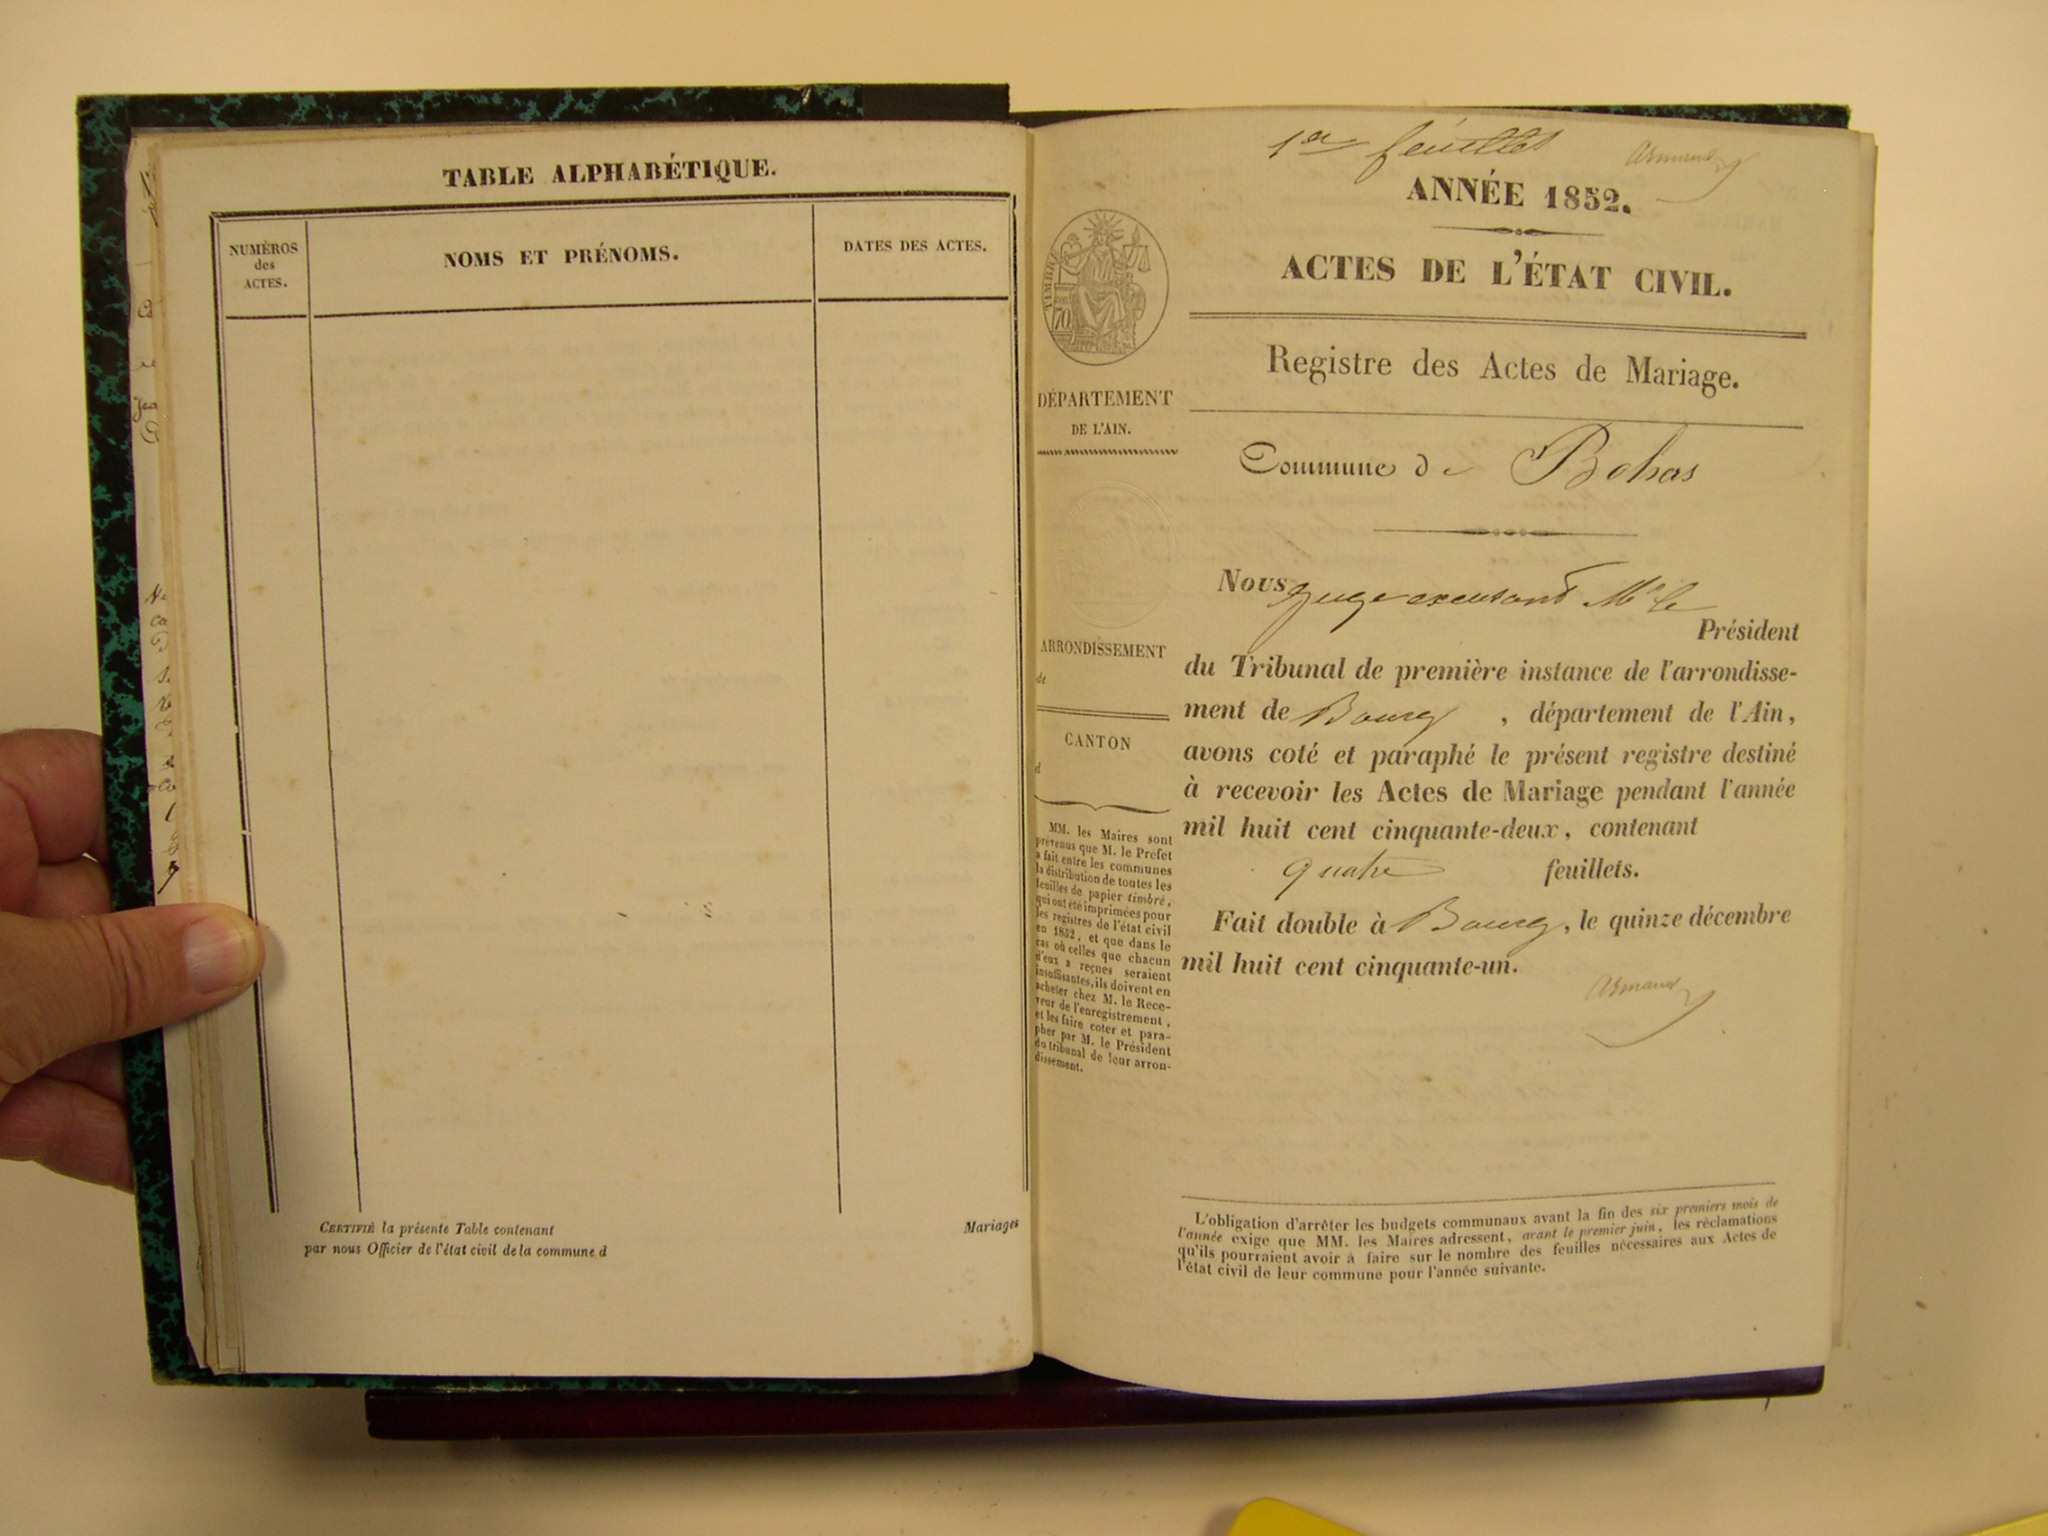 TABLE ALPHABÉTIQUE.
NUMÉROS
des
ACTES.
NOMS ET PRÉNOMS.
DATES DES ACTES.
CERTIFIÉ la présente Table contenant
par nous Officier de l'état civil de la commune d
Mariages
1er feuillet
Armand
ANNÉE 1852.
ACTES DE L'ÉTAT CIVIL.
TIMBRE
70
Registre des Actes de Mariage.
DÉPARTEMENT
DE L'AIN.
Commune de Bohas
Nous Juge excusant Mr le
Président
du Tribunal de première instance de l'arrondisse-
ment de Bourg , département de l'Ain,
avons coté et paraphé le présent registre destiné
à recevoir les Actes de Mariage pendant l'année
mil huit cent cinquante-deux, contenant
quatre feuillets.
Fait double à Bourg, le quinze décembre
mil huit cent cinquante-un.
Armand
ARRONDISSEMENT
de
CANTON
d
MM. les Maires sont
prévenus que M. le Préfet
a fait entre les communes
la distribution de toutes les
feuilles de papier timbré,
qui ont été imprimées pour
les registres de l'état civil
en 1852, et que dans le
cas où celles que chacun
d'eux a reçues seraient
insuffisantes, ils doivent en
acheter chez M. le Rece-
veur de l'enregistrement,
et les faire coter et para-
pher par M. le Président
du tribunal de leur arron-
dissement.
L'obligation d'arrêter les budgets communaux avant la fin des six premiers mois de
l'année exige que MM. les Maires adressent, avant le premier juin, les réclamations
qu'ils pourraient avoir à faire sur le nombre des feuilles nécessaires aux Actes de
l'état civil de leur commune pour l'année suivante.